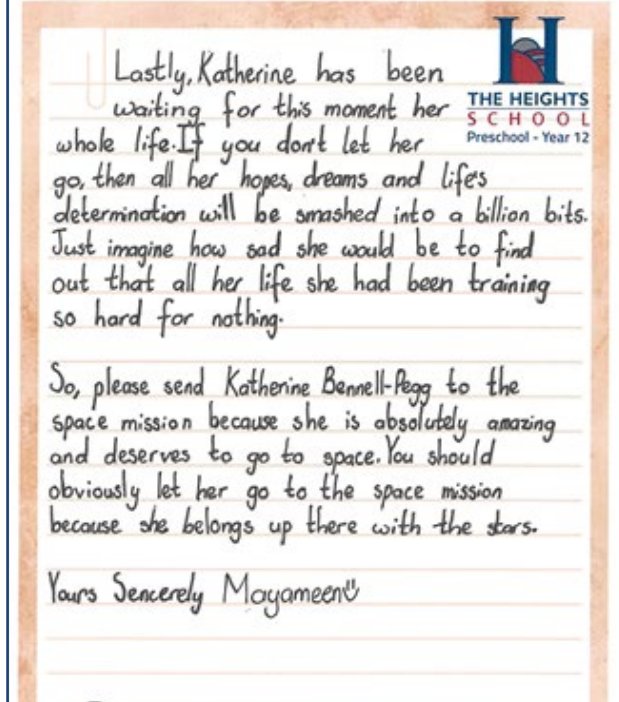 Lastly, Katherine has been
waiting for this moment her
THE HEIGHTS
SCHOOL
Preschool - Year 12
whole life. If you don't let her
go, then all her hopes, dreams and life's
determination will be smashed into a billion bits.
Just imagine how sad she would be to find
out that all her life she had been training
so hard for nothing.
So, please send Katherine Bennell-Pegg to the
space mission because she is absolutely amazing
and deserves to go to space. You should
obviously let her go to the space mission
because she belongs up there with the stars.
Yours Sencerely Mayameen